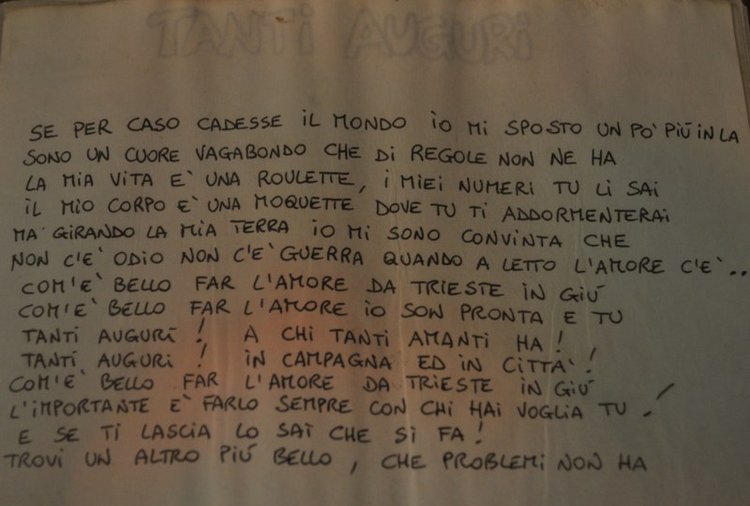 TANTI AUGURI
SE PER CASO CADESSE IL MONDO IO MI SPOSTO UN PO' PIÚ IN LA
SONO UN CUORE VAGABONDO CHE DI REGOLE NON NE HA
LA MIA VITA E' UNA ROULETTE, I MIEI NUMERI TU LI SAI
IL MIO CORPO E' UNA MOQUETTE DOVE TU TI ADDORMENTERAI
MA' GIRANDO LA MIA TERRA IO MI SONO CONVINTA CHE
NON C'E' ODIO NON C'E' GUERRA QUANDO A LETTO L'AMORE C'E'..
COM'E' BELLO FAR L'AMORE DA TRIESTE IN GIÚ
COM'E' BELLO FAR L'AMORE IO SON PRONTA E TU
TANTI AUGURI! A CHI TANTI AMANTI HA!
TANTI AUGURI! IN CAMPAGNA ED IN CITTA'!
COM'E' BELLO FAR L'AMORE DA TRIESTE IN GIÚ
L'IMPORTANTE E' FARLO SEMPRE CON CHI HAI VOGLIA TU!
E SE TI LASCIA LO SAI CHE SI FA!
TROVI UN ALTRO PIÚ BELLO, CHE PROBLEMI NON HA